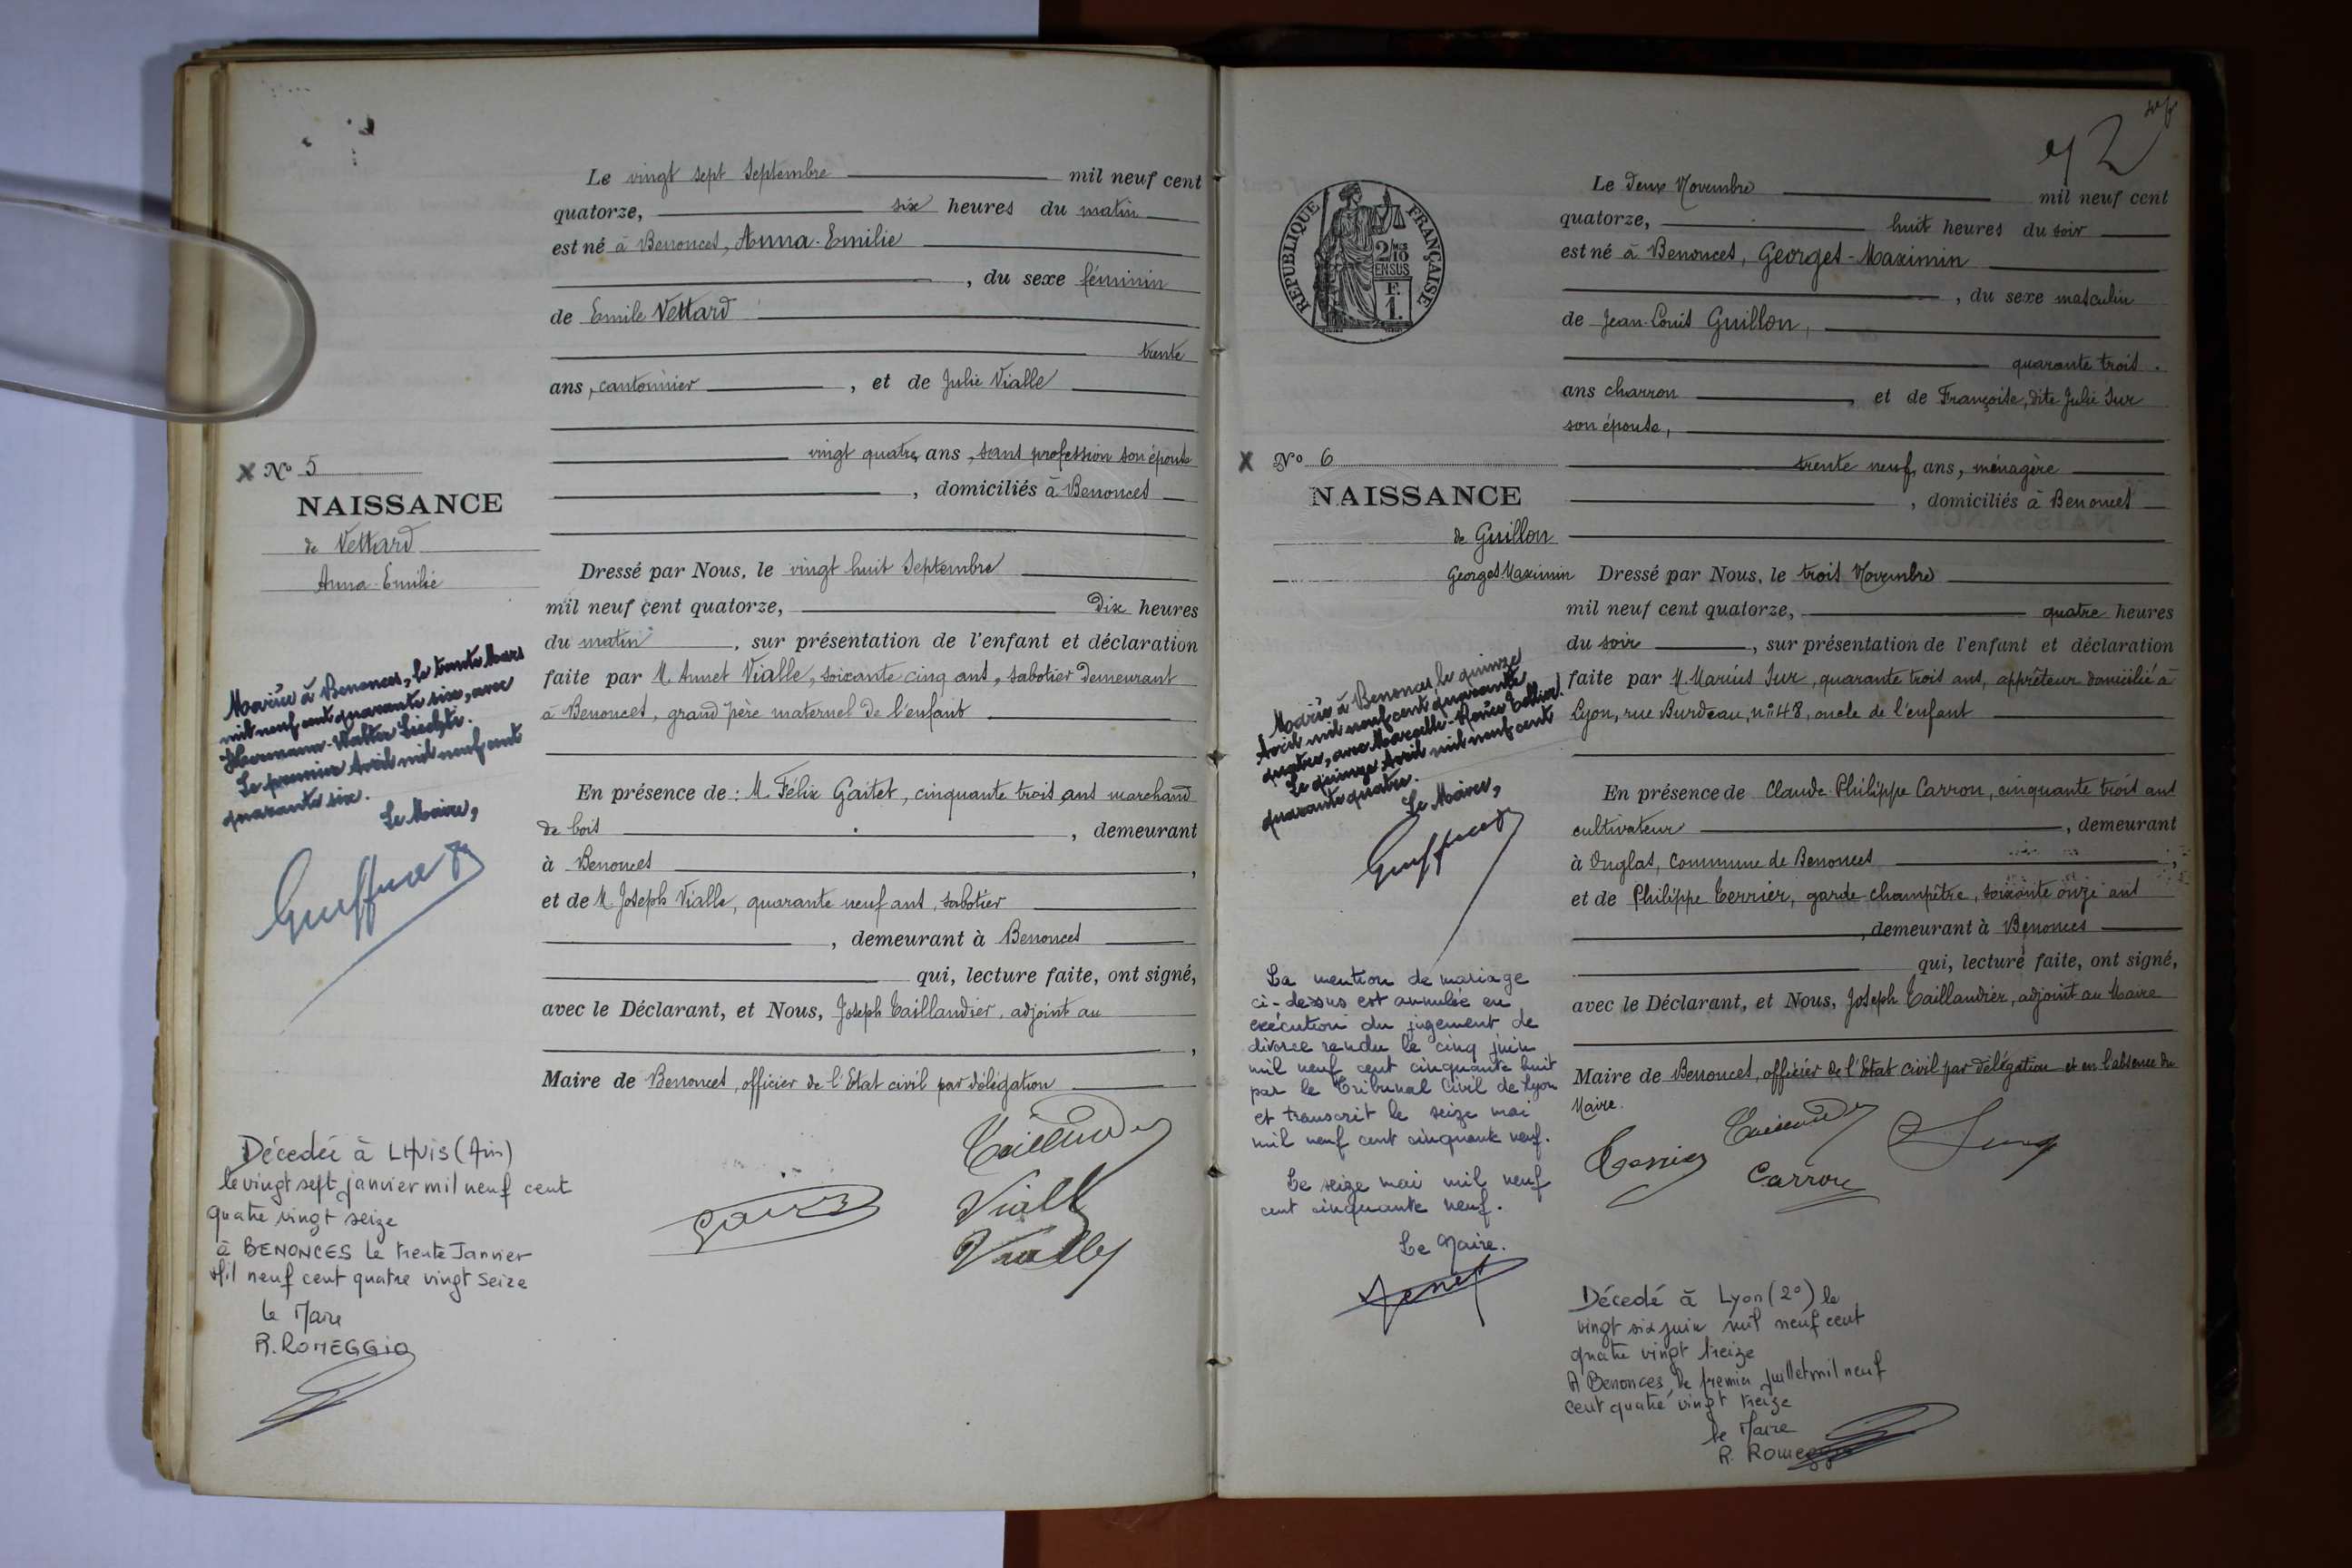 Le vingt sept Septembre mil neuf cent
quatorze, six heures du matin
est né à Benonces, Anna-Emilie
, du sexe féminin
de Emile Vettard
trente
ans, cantonnier , et de Julie Vialle
vingt quatre ans, sans profession son épouse
, domiciliés à Benonces
X No 5
NAISSANCE
de Vettard
Anna-Emilie
Dressé par Nous, le vingt huit Septembre
mil neuf cent quatorze, Dix heures
du matin , sur présentation de l'enfant et déclaration
faite par M. Annet Vialle, soixante cinq ans, sabotier demeurant
à Benonces, grand père maternel de l'enfant
En présence de : M. Félix Gaitet, cinquante trois ans marchand
de bois , demeurant
à Benonces ,
et de M. Joseph Vialle, quarante neuf ans, sabotier
, demeurant à Benonces
qui, lecture faite, ont signé,
avec le Déclarant, et Nous, Joseph Taillandier, adjoint au
,
Maire de Benonces, officier de l'Etat civil par délégation
Mariée à Benonces, le trente Mars
mil neuf cent quarante six, avec
Hermann-Walter Liechti.
Le premier Avril mil neuf cent
quarante six.
Le Maire,
Décedée à LHUIS (Ain)
le vingt sept janvier mil neuf cent
quatre vingt seize
à BENONCES le trente Janvier
Mil neuf cent quatre vingt seize
le Maire
R. ROMEGGIO
Taillandier
Vialle
Vialle
RÉPUBLIQUE FRANÇAISE
2/10
EN SUS
F.
1.
Le deux Novembre mil neuf cent
quatorze, huit heures du soir
est né à Benonces, Georges-Maximin
, du sexe masculin
de Jean-Louis Guillon,
quarante trois
ans charron , et de Françoise, dite Julie Sur
son épouse,
trente neuf, ans, ménagère
, domiciliés à Benonces
X No 6
NAISSANCE
de Guillon
Georges Maximin
Dressé par Nous, le trois Novembre
mil neuf cent quatorze, quatre heures
du soir , sur présentation de l'enfant et déclaration
faite par M. Marius Sur, quarante trois ans, apprêteur domicilié à
Lyon, rue Burdeau, no 48, oncle de l'enfant
En présence de Claude Philippe Carron, cinquante trois ans
cultivateur , demeurant
à Onglas, Commune de Benonces ,
et de Philippe Terrier, garde champêtre, soixante onze ans
, demeurant à Benonces
qui, lecture faite, ont signé,
avec le Déclarant, et Nous, Joseph Taillandier, adjoint au Maire
Maire de Benonces, officier de l'Etat civil par délégation et en l'absence du
Maire.
Marié à Benonces le quinze
Avril mil neuf cent quarante
quatre, avec Marcelle-Renée
Le quinze Avril mil neuf cent
quarante quatre.
Le Maire,
La mention de mariage
ci-dessus est annulée en
exécution du jugement de
divorce rendu le cinq juin
mil neuf cent cinquante huit
par le Tribunal Civil de Lyon
et transcrit le seize mai
mil neuf cent cinquante neuf.
Le seize mai mil neuf
cent cinquante neuf.
Le Maire.
Taillandier
Terrier
Carron
Sur
Décedé à Lyon (2e) le
vingt six juin mil neuf cent
quatre vingt treize
A Benonces, le premier juillet mil neuf
cent quatre vingt treize
le Maire
R. Romeggio